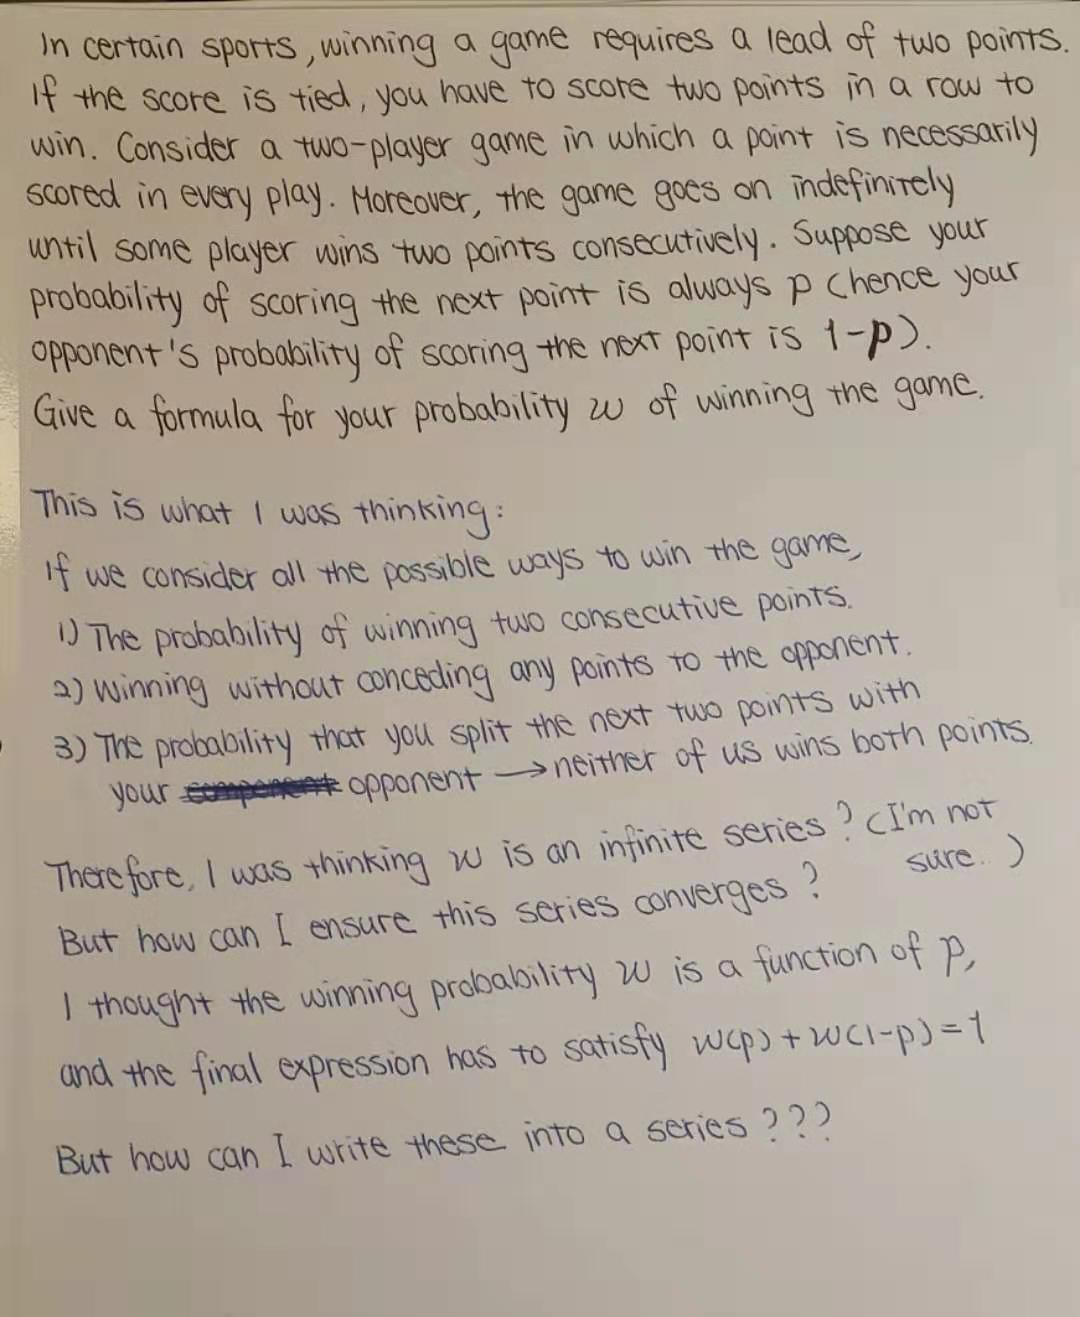 In certain sports, winning a game requires a lead of two points.
If the score is tied, you have to score two points in a row to
win. Consider a two-player game in which a point is necessarily
scored in every play. Moreover, the game goes on indefinitely
until some player wins two points consecutively. Suppose your
probability of scoring the next point is always p (hence your
opponent's probability of scoring the next point is 1-p).
Give a formula for your probability w of winning the game.
This is what I was thinking:
If we consider all the possible ways to win the game,
1) The probability of winning two consecutive points.
2) Winning without conceding any points to the opponent.
3) The probability that you split the next two points with
your opponent → neither of us wins both points.
Therefore, I was thinking w is an infinite series? (I'm not
sure.)
But how can I ensure this series converges?
I thought the winning probability w is a function of p,
and the final expression has to satisfy w(p) + w(1-p) = 1
But how can I write these into a series???